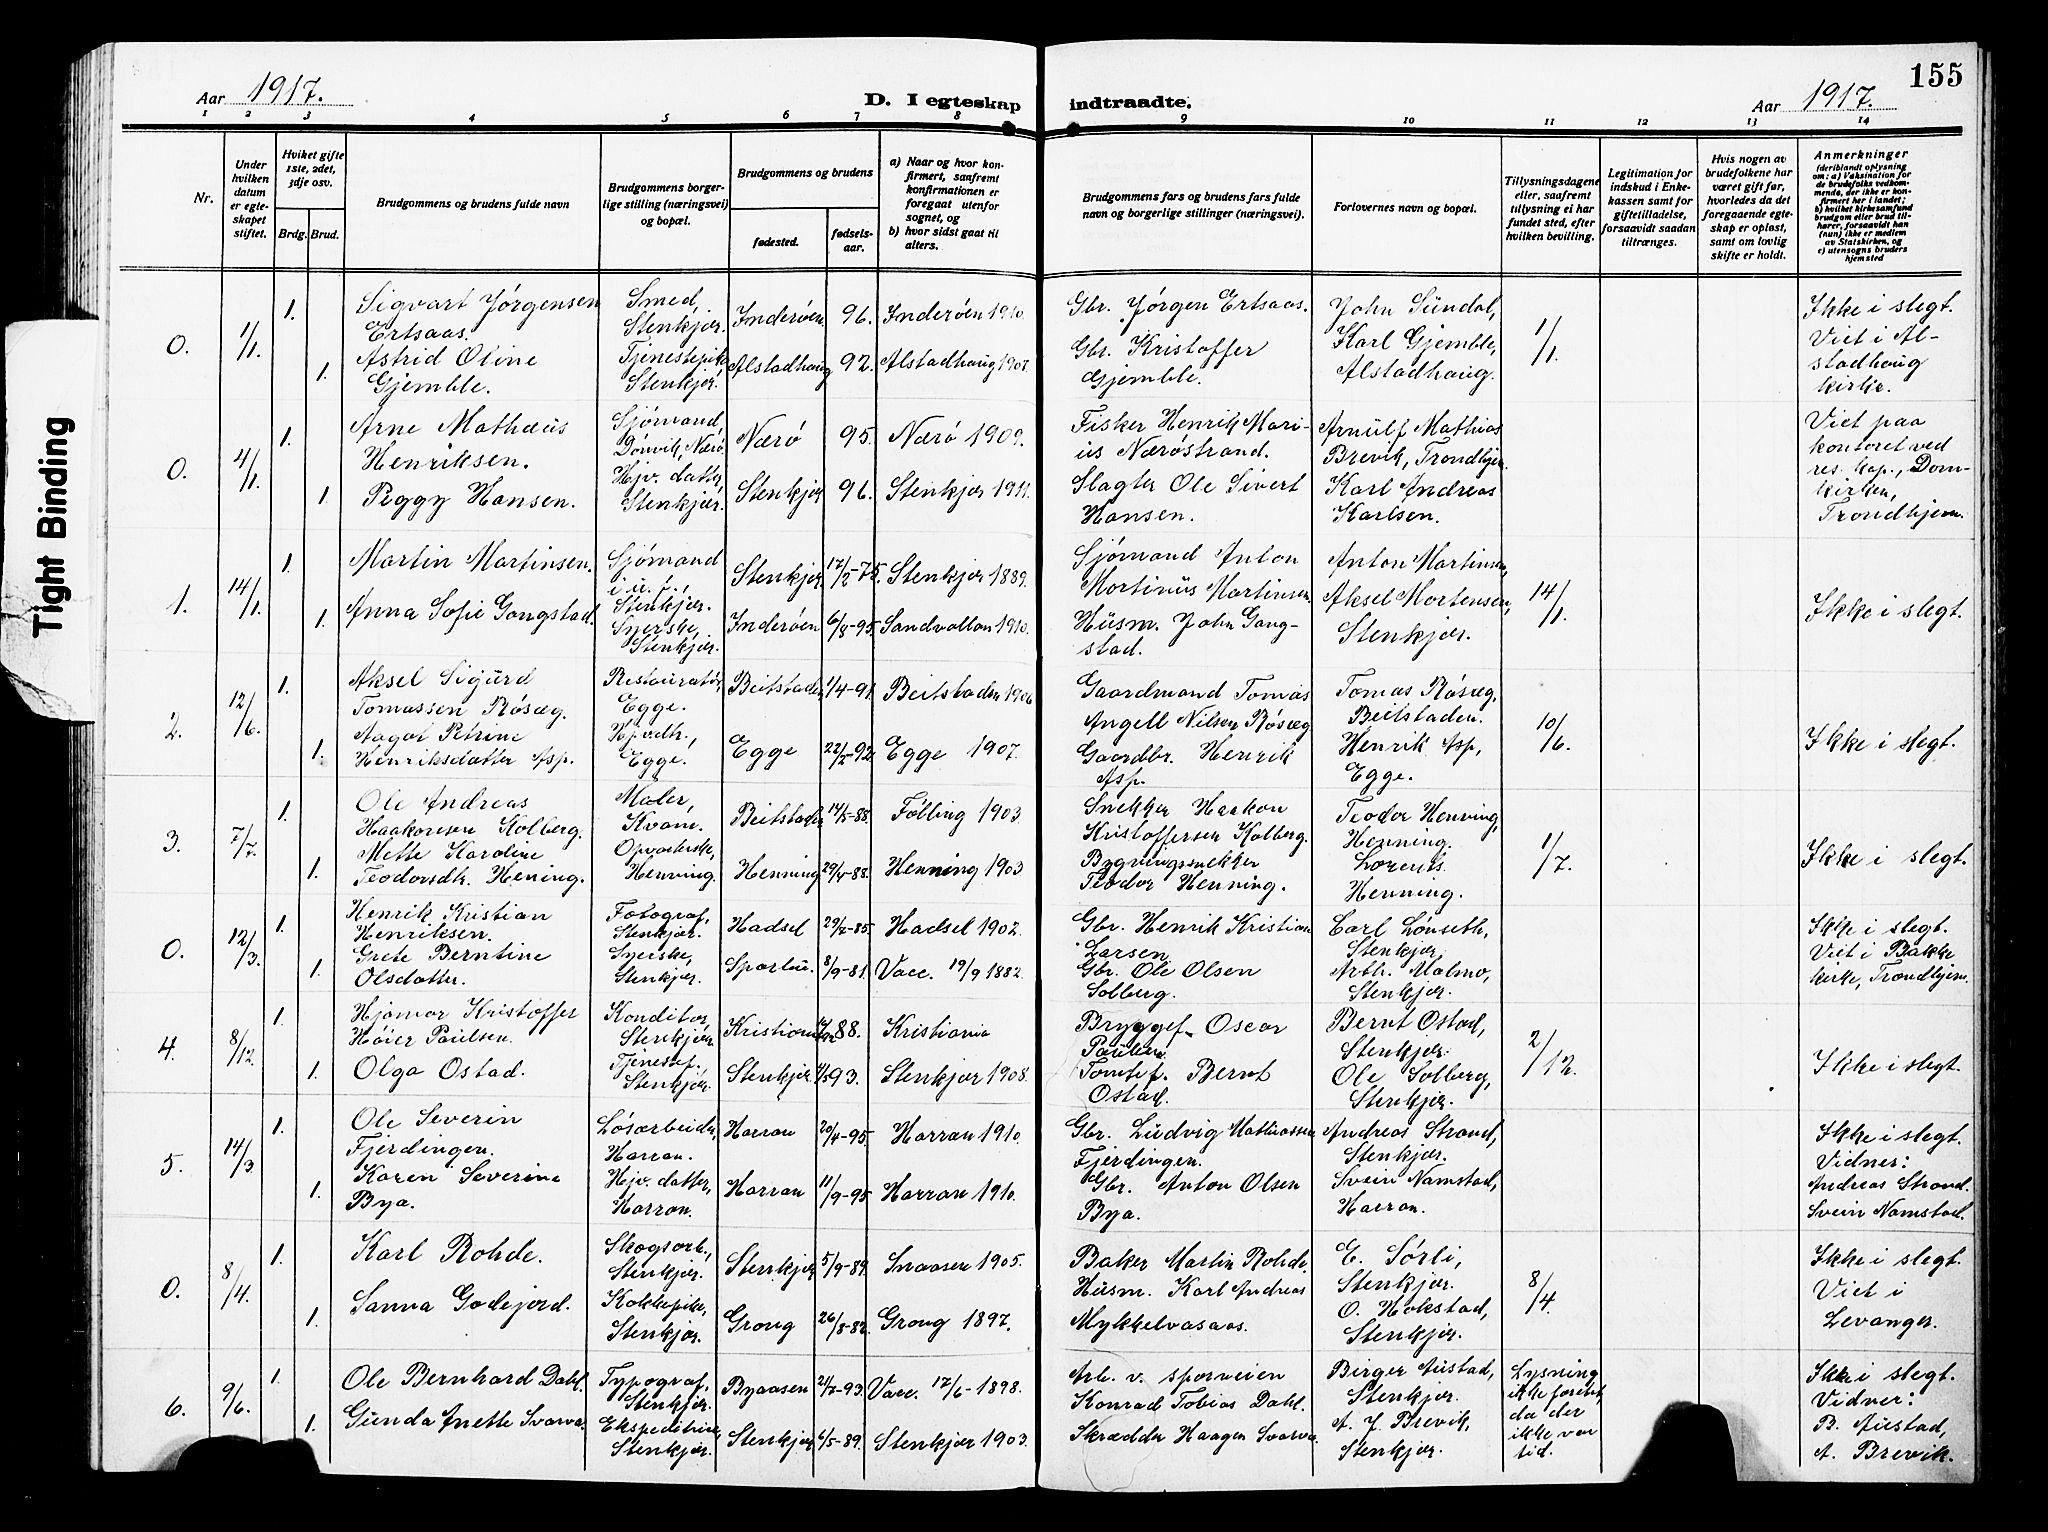 Tight Binding
155
Aar 1917.
D. I egteskap indtraadte.
Aar 1917.
1 2 3 4 5 6 7 8 9 10 11 12 13 14
Nr.
Under
hvilken
datum
er egte-
skapet
stiftet.
Hvilket gifte
1ste, 2det,
3dje osv.
Brdg. Brud.
Brudgommens og brudens fulde navn
Brudgommens borger-
lige stilling (næringsvei)
og bopæl.
Brudgommens og brudens
fødested.
fødsels-
aar.
a) Naar og hvor kon-
firmert, saafremt
konfirmationen er
foregaat utenfor
sognet, og
b) hvor sidst gaat til
alters.
Brudgommens fars og brudens fars fulde
navn og borgerlige stillinger (næringsvei).
Forlovernes navn og bopæl.
Tillysningsdagene
eller, saafremt
tillysning ei har
fundet sted, efter
hvilken bevilling.
Legitimation for
indskud i Enke-
kassen samt for
giftetilladelse,
forsaavidt saadan
tiltrænges.
Hvis nogen av
brudefolkene har
været gift før,
hvorledes da det
foregaaende egte-
skap er opløst,
samt om lovlig
skifte er holdt.
Anmerkninger
(deriblandt oplysning
om: a) Vaksination for
de brudefolks vedkom-
mende, der ikke er kon-
firmert her i landet;
b) hvilket kirkesamfund
brudgom eller brud til-
hører, forsaavidt han
(hun) ikke er medlem
av Statskirken, og
c) utensogns bruders
hjemsted
0. 1/1. 1.
Sigvart Jörgensen
Ertsaas.
Smed,
Stenkjær.
Inderöen 96. Inderöen 1910.
Gbr. Jörgen Ertsaas.
John Sündal,
1. Astrid Oline
Gjemble.
Tjenestepike
Stenkjær.
Alstadhaug 92. Alstadhaug 1907.
Gbr. Kristoffer
Gjemble.
Karl Gjemble,
Alstadhaug.
1/1.
Ikke i slegt.
Viet i Al-
stadhaug
kirke.
0. 4/1. 1.
Arne Mathæus
Henriksen.
Sjömand,
Dönvik, Nærö
Nærö 95. Nærö 1909.
Fisker Henrik Mari-
us Næröstrand.
Arnülf Mathias
Brevik, Trondhjem.
1. Peggy Hansen.
Hjv. datter,
Stenkjær.
Stenkjær 96. Stenkjær 1911.
Slagter Ole Sivert
Hansen.
Karl Andreas
Karlsen.
Viet paa
kontoret ved
res. kap., Dom-
kirken,
Trondhjem.
1. 14/1. 1.
Martin Martinsen.
Sjömand
i u. f.,
Stenkjær.
Stenkjær 17/2-75. Stenkjær 1889.
Sjömand Anton
Martinüs Martinsen.
Anton Martinsen,
1. Anna Sofie Gangstad.
Syerske,
Stenkjær.
Inderöen 6/8-95. Sandvollan 1910.
Hüsm. John Gang-
stad.
Aksel Mortensen,
Stenkjær.
14/1.
Ikke i slegt.
2. 12/6. 1.
Aksel Sigürd
Tomassen Rösæg.
Restauratör,
Egge.
Beitstaden 1/4-91. Beitstaden 1906
Gaardmand Tomas
Angell Nilsen Rösæg
Tomas Rösæg,
Beitstaden.
1. Aagot Petrine
Henriksdatter Asp.
Hjvdtr.,
Egge.
Egge 22/2-92. Egge 1907.
Gaardbr. Henrik
Asp.
Henrik Asp,
Egge.
10/6.
Ikke i slegt.
3. 7/7. 1.
Ole Andreas
Haakonsen Kolberg.
Maler,
Kvam.
Beitstaden 14/5-88. Fölling 1903.
Snekker Haakon
Kristoffersen Kolberg.
Teodor Henning,
Henning.
1. Mette Karoline
Teodorsdtr. Hening.
Opvarterske,
Henning.
Henning 29/4-88. Henning 1903.
Bygningssnekker
Teodor Henning.
Lorents
Henning.
1/7.
Ikke i slegt.
0. 12/3. 1.
Henrik Kristian
Henriksen.
Fotograf,
Stenkjær.
Hadsel 29/7-85. Hadsel 1902.
Gbr. Henrik Kristian
Larsen
Carl Lönseth,
Stenkjær,
1. Grete Berntine
Olsdatter.
Syerske,
Stenkjær.
Sparbu. 8/9-81. Vacc. 19/9 1882.
Gbr. Ole Olsen
Solberg.
Arth. Malmo,
Stenkjær.
Ikke i slegt.
Viet i Bakke
kirke, Trondhjem.
4. 8/12. 1.
Hjalmar Kristoffer
Höier Paulsen.
Konditor,
Stenkjær.
Kristiania 88. Kristiania
Bryggef. Oscar
Paulsen
Bernt Ostad,
Stenkjær.
1. Olga Ostad.
Tjenestep.
Stenkjær.
Stenkjær 93. Stenkjær 1908.
Tomtef. Bernt
Ostad.
Ole Solberg,
Stenkjær.
2/12.
Ikke i slegt.
5. 14/3 1.
Ole Severin
Fjerdingen.
Lösarbeider,
Harran.
Harran 20/4-95. Harran 1910.
Gbr. Ludvig Mathiassen
Fjerdingen.
Andreas Strand,
Stenkjær.
1. Karen Severine
Bya.
Hjv. datter,
Harran.
Harran 11/9-95. Harran 1910.
Gbr. Anton Olsen
Bya.
Svein Namstad,
Harran.
Ikke i slegt.
Vidner:
Andreas Strand.
Svein Namstad.
0. 8/4. 1.
Karl Rohde.
Skogsarb.,
Stenkjær.
Stenkjær 5/9-89. Snaasen 1905.
Baker Martin Rohde.
E. Sörli,
Stenkjær.
1. Sanna Godejord.
Kokkepike,
Stenkjær.
Grong 26/8-82. Grong 1897.
Hüsm. Karl Andreas
Mykkelvasaas.
O. Hokstad,
Stenkjær.
8/4.
Ikke i slegt.
Viet i
Levanger.
6. 9/6. 1.
Ole Bernhard Dahl.
Typograf,
Stenkjær.
Byaasen 2/7-93. Vacc. 17/6-1898.
Arb. v. sporveien
Konrad Tobias Dahl.
Birger Aüstad,
Stenkjær.
1. Gunda Anette Svarva.
Ekspeditrice,
Stenkjær.
Stenkjær 6/5-89. Stenkjær 1903.
Skrædder Haagen Svarva
A. J. Brevik,
Stenkjær.
Lysning
ikke foretat,
da der
ikke var
tid.
Ikke i slegt.
Vidner:
B. Aüstad,
A. Brevik.